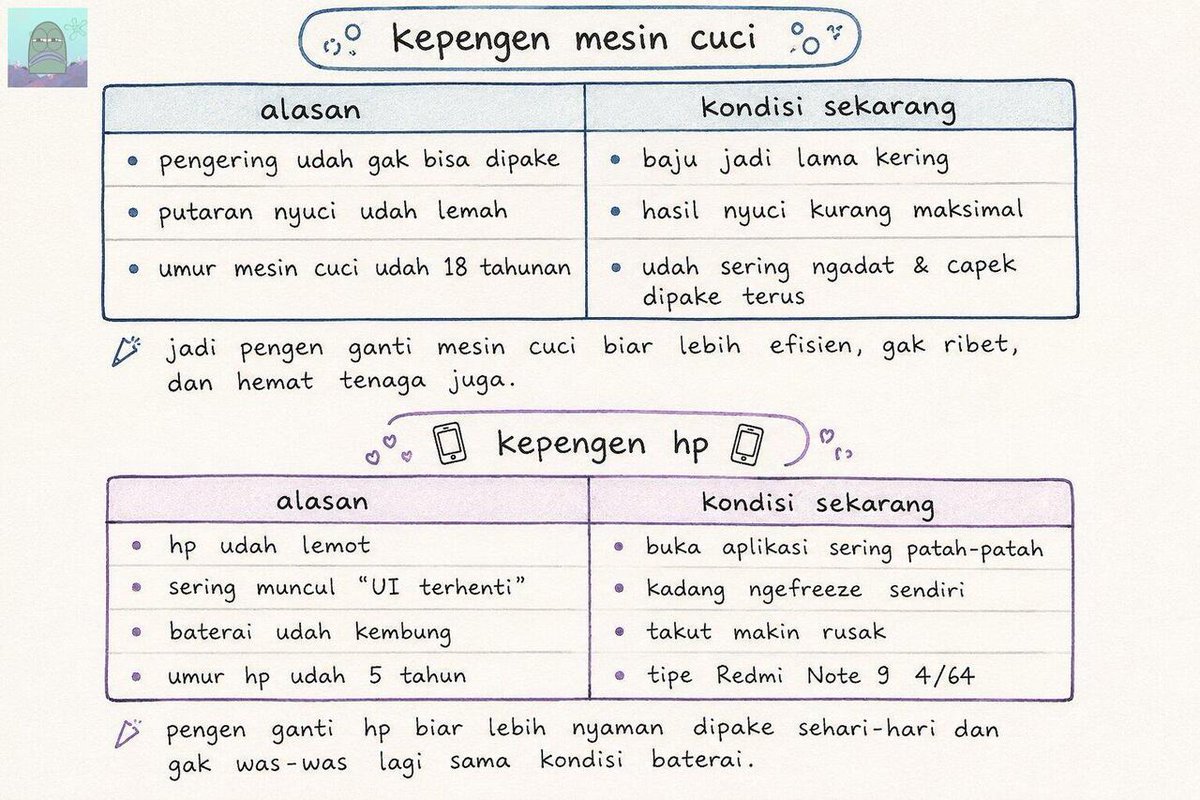 kepengen mesin cuci
alasan
kondisi sekarang
• pengering udah gak bisa dipake
• baju jadi lama kering
• putaran nyuci udah lemah
• hasil nyuci kurang maksimal
• umur mesin cuci udah 18 tahunan
• udah sering ngadat & capek
dipake terus
jadi pengen ganti mesin cuci biar lebih efisien, gak ribet,
dan hemat tenaga juga.
kepengen hp
alasan
kondisi sekarang
• hp udah lemot
• buka aplikasi sering patah-patah
• sering muncul “UI terhenti”
• kadang ngefreeze sendiri
• baterai udah kembung
• takut makin rusak
• umur hp udah 5 tahun
• tipe Redmi Note 9 4/64
pengen ganti hp biar lebih nyaman dipake sehari-hari dan
gak was-was lagi sama kondisi baterai.